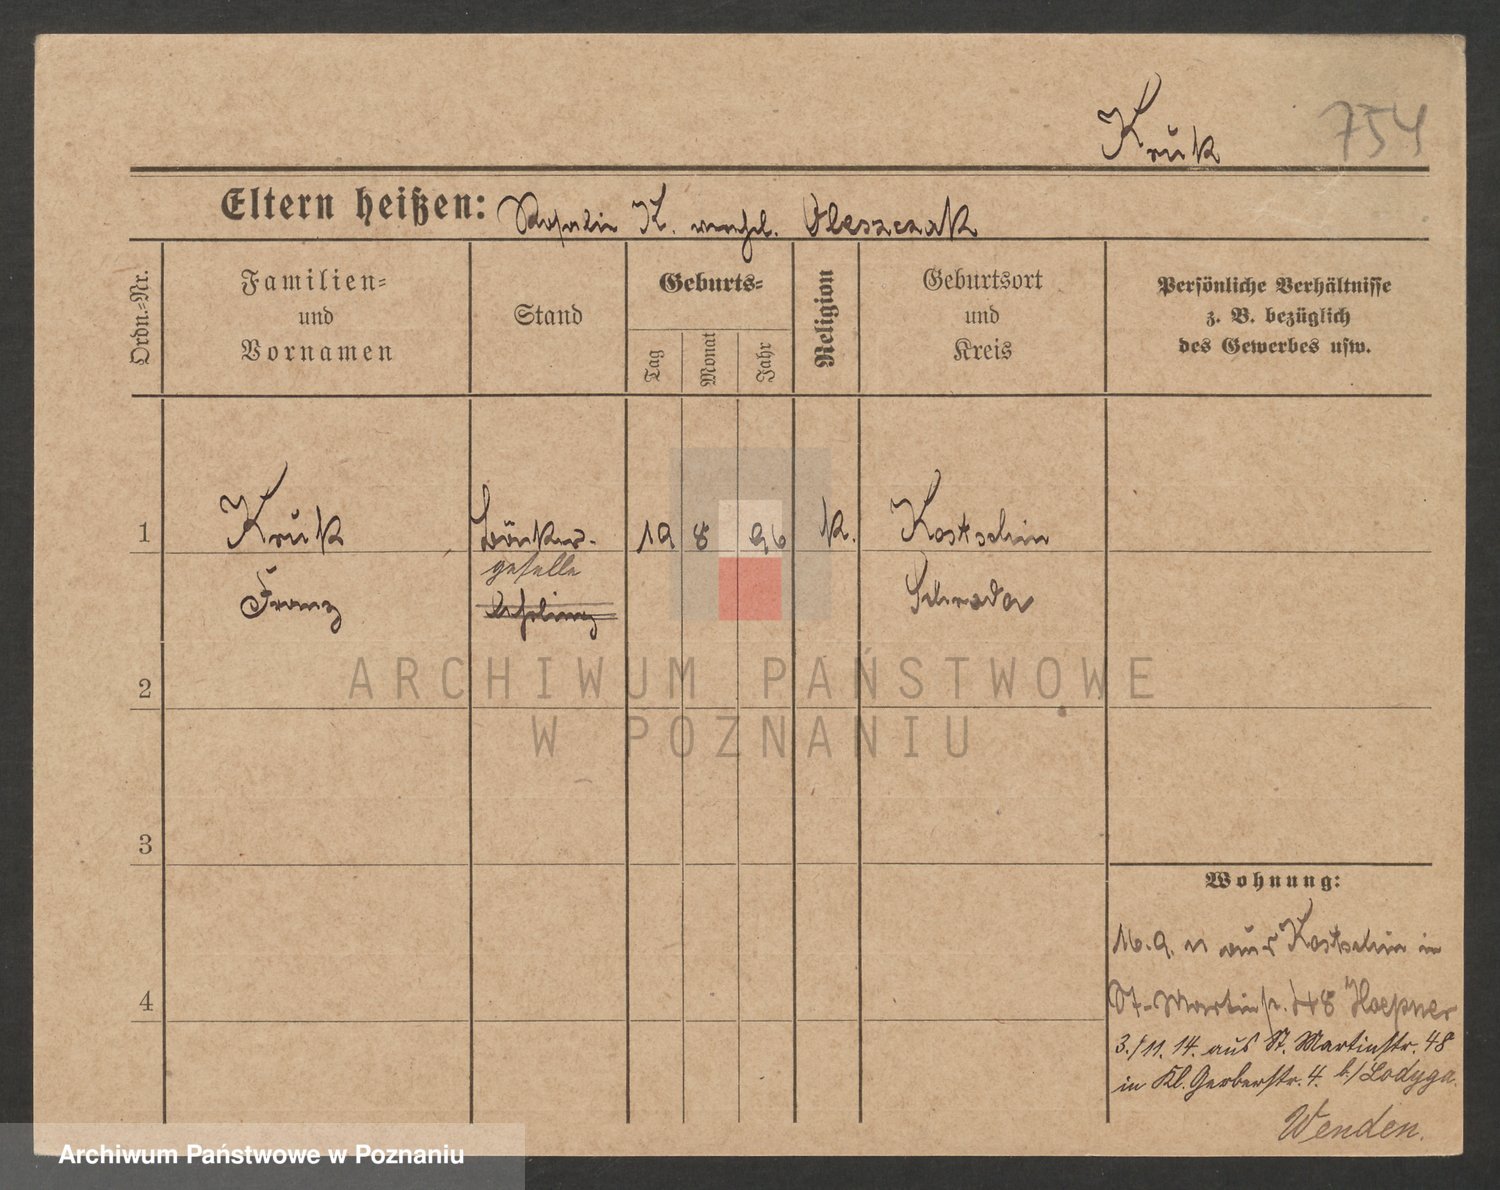 Kruk 754
Eltern heißen: Rosalie K. verehel. Oleszczak
Ordn.-Nr.
Familien-
und
Vornamen
Stand
Geburts-
Tag
Monat
Jahr
Religion
Geburtsort
und
Kreis
Persönliche Verhältnisse
z. B. bezüglich
des Gewerbes usw.
1 Kruk 19 8 96 k. Kostschin
geselle
Franz Lehrling Schroda
2
3
4
Wohnung:
16. 9. 11 aus Kostschin in
St. Martinstr. 48 Hoepner
3./11. 14. aus St. Martinstr. 48
in Kl. Gerberstr. 4. b./Lodyga.
Wenden.
ARCHIWUM PAŃSTWOWE
W POZNANIU
Archiwum Państwowe w Poznaniu